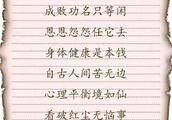 成败功名只等闲
恩恩怨怨任它去
身体健康是本钱
自古人间苦无边
心理平衡境如仙
看破红尘无恼事